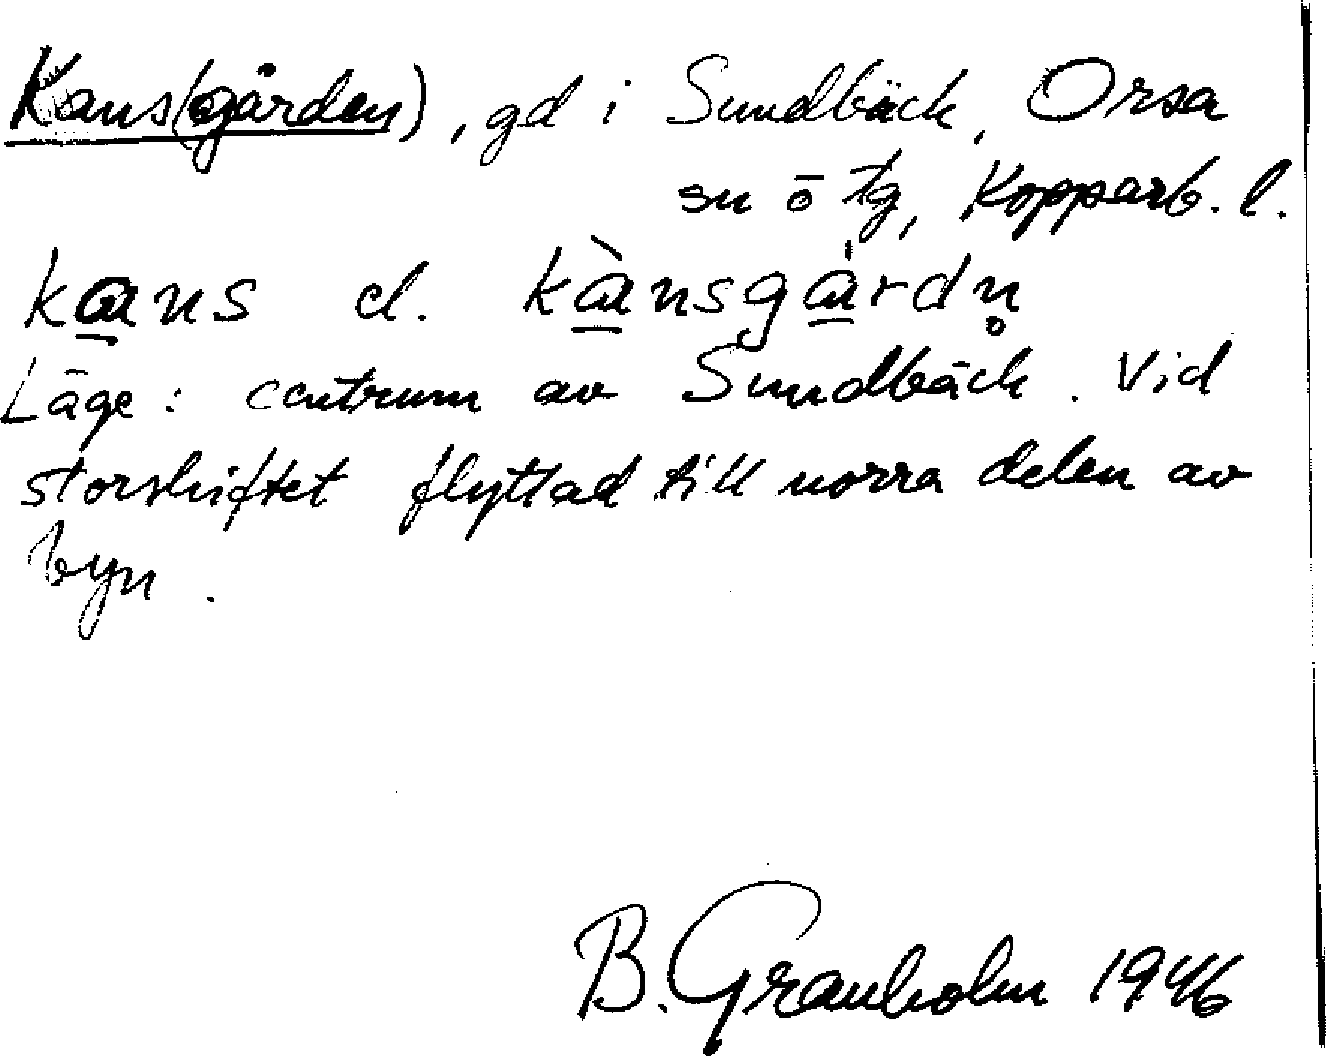 Kans(gården), gd i Sundbäck, Orsa
sn ö tg, Kopparb. l.
kans el. kànsgàrdn̥
Läge: centrum av Sundbäck. Vid
storskiftet flyttad till norra delen av
byn.
B. Granholm 1946